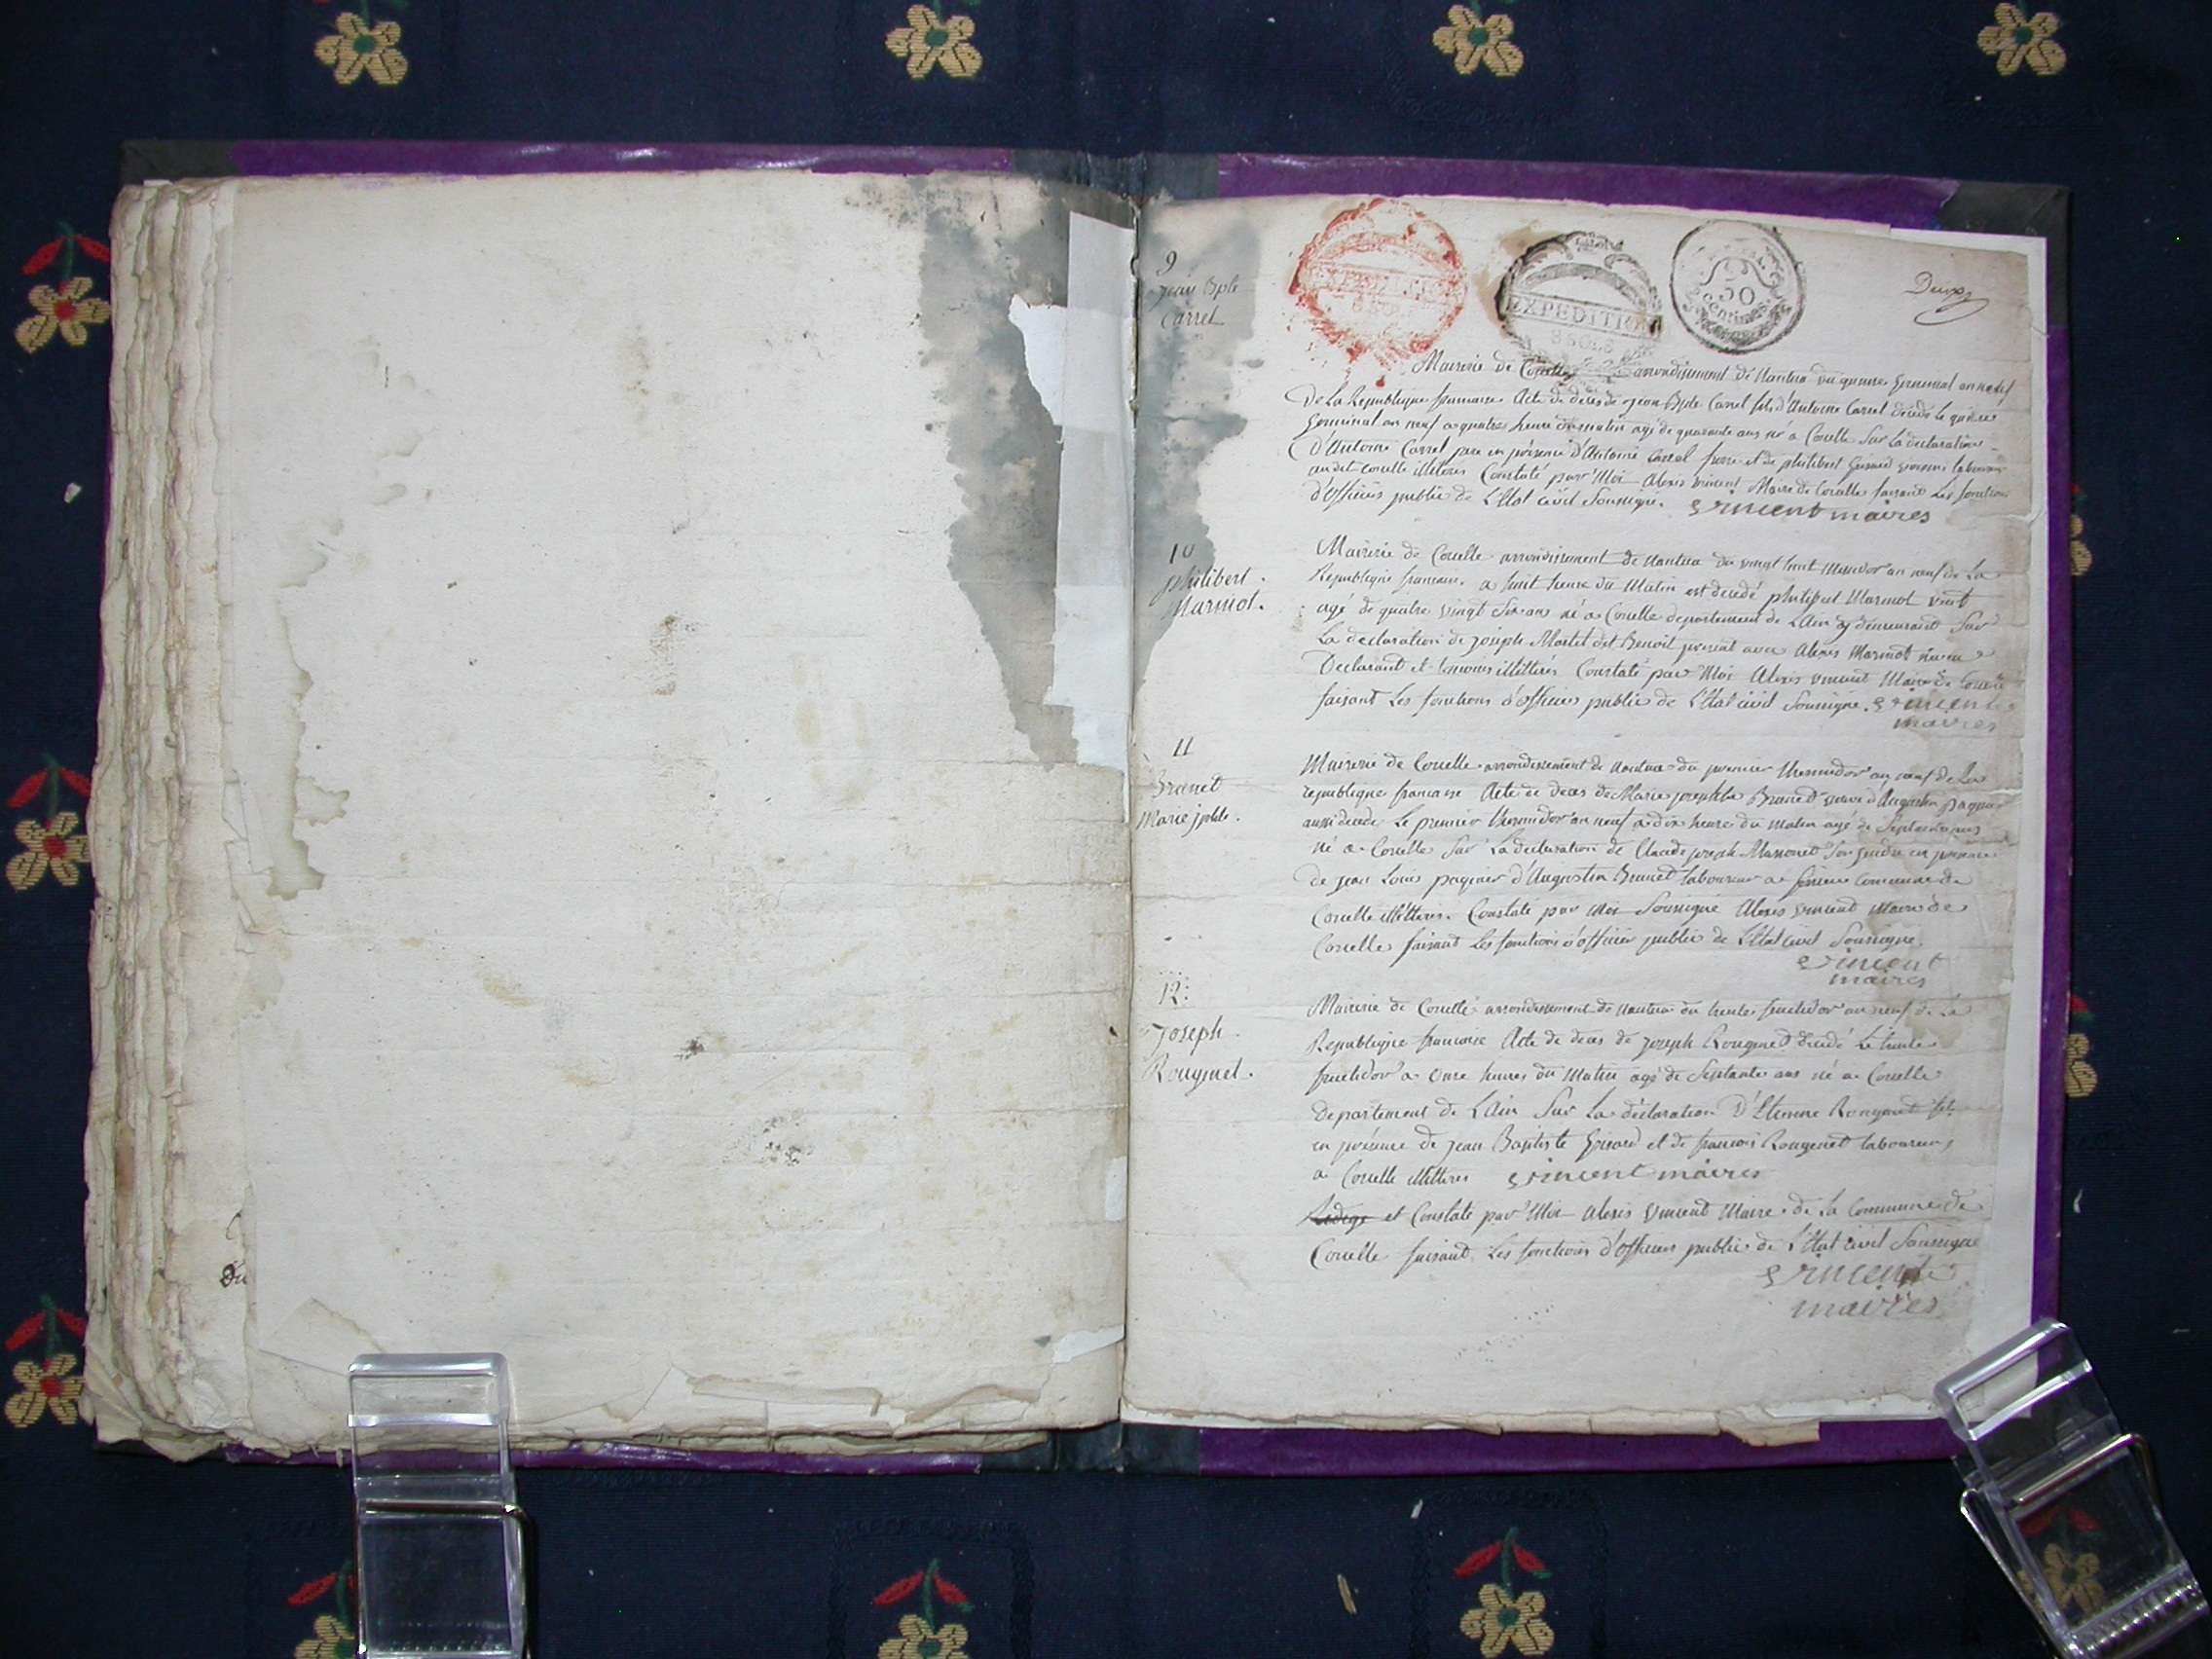 Deux
EXPEDITION
8 SOLS
EXPEDITION
8 SOLS
50
centimes
9
jean Bpte
Carret
Mairie de Corcelle arrondissement de Nantua du quinze germinal an neuf
De la Republique francaise Acte de deces de jean Bpte Carrel fils d'Antoine Carrel décédé le quinze
germinal an neuf a quatre heure du matin agé de quarante ans né a Corcelle Sur la declaration
d'Antoine Carrel pere en présence d'Antoine Carrel frere et de philibert
audit Corcelle illiteres Constaté par Moi Alexis vincent Maire de Corcelle faisant les fonctions
d'officier public de L'Etat civil Soussigné. vincent maires
10
philibert.
Marmot.
Mairie de Corcelle arrondissement de Nantua du vingt huit Messidor an neuf de La
Republique francaise a huit heure du Matin est decedé philibert Marmot
agé de quatre vingt Six ans né a Corcelle departement de L'Ain y demeurant Sur
La declaration de joseph Martel dit Benoit avec Alexis Marmot neveu
Declarant et temoins illitterés Constaté par Moi Alexis vincent Maire de Corcelle
faisant Les fonctions d'officier public de L'Etat civil Soussigné. vincent
maires
11
Brunet
Marie jphte.
Mairie de Corcelle arrondissement de Nantua du premier thermidor an neuf de La
republique francaise Acte de deces de Marie josephte Brunet veuve d'Augustin
aussi decedé Le premier thermidor an neuf a dix heure du matin agé de
né a Corcelle Sur La declaration de Claude joseph Son gendre en présence
de jean Louis d'Augustin Brunet laboureur a commune de
Corcelle illitteres. Constaté par Moi Soussigné Alexis vincent Maire de
Corcelle faisant Les fonctions d'officier public de L'Etat civil Soussigné.
vincent
maires
12
Joseph.
Rougmet.
Mairie de Corcelle arrondissement de Nantua du trente fructidor an neuf de La
Republique francaise Acte de deces de joseph Rougmet décédé Le trente
fructidor a onze heures du Matin agé de Septante ans né a Corcelle
departement de L'Ain Sur La déclaration D'Etienne Rougmet fils
en présence de jean Baptiste et de francois Rougemet laboureurs
a Corcelle illitteres vincent maires
Redige et Constaté par Moi Alexis vincent Maire de La Commune de
Corcelle faisant Les fonctions d'officier public de L'Etat civil Soussigné
vincent
maires
Du